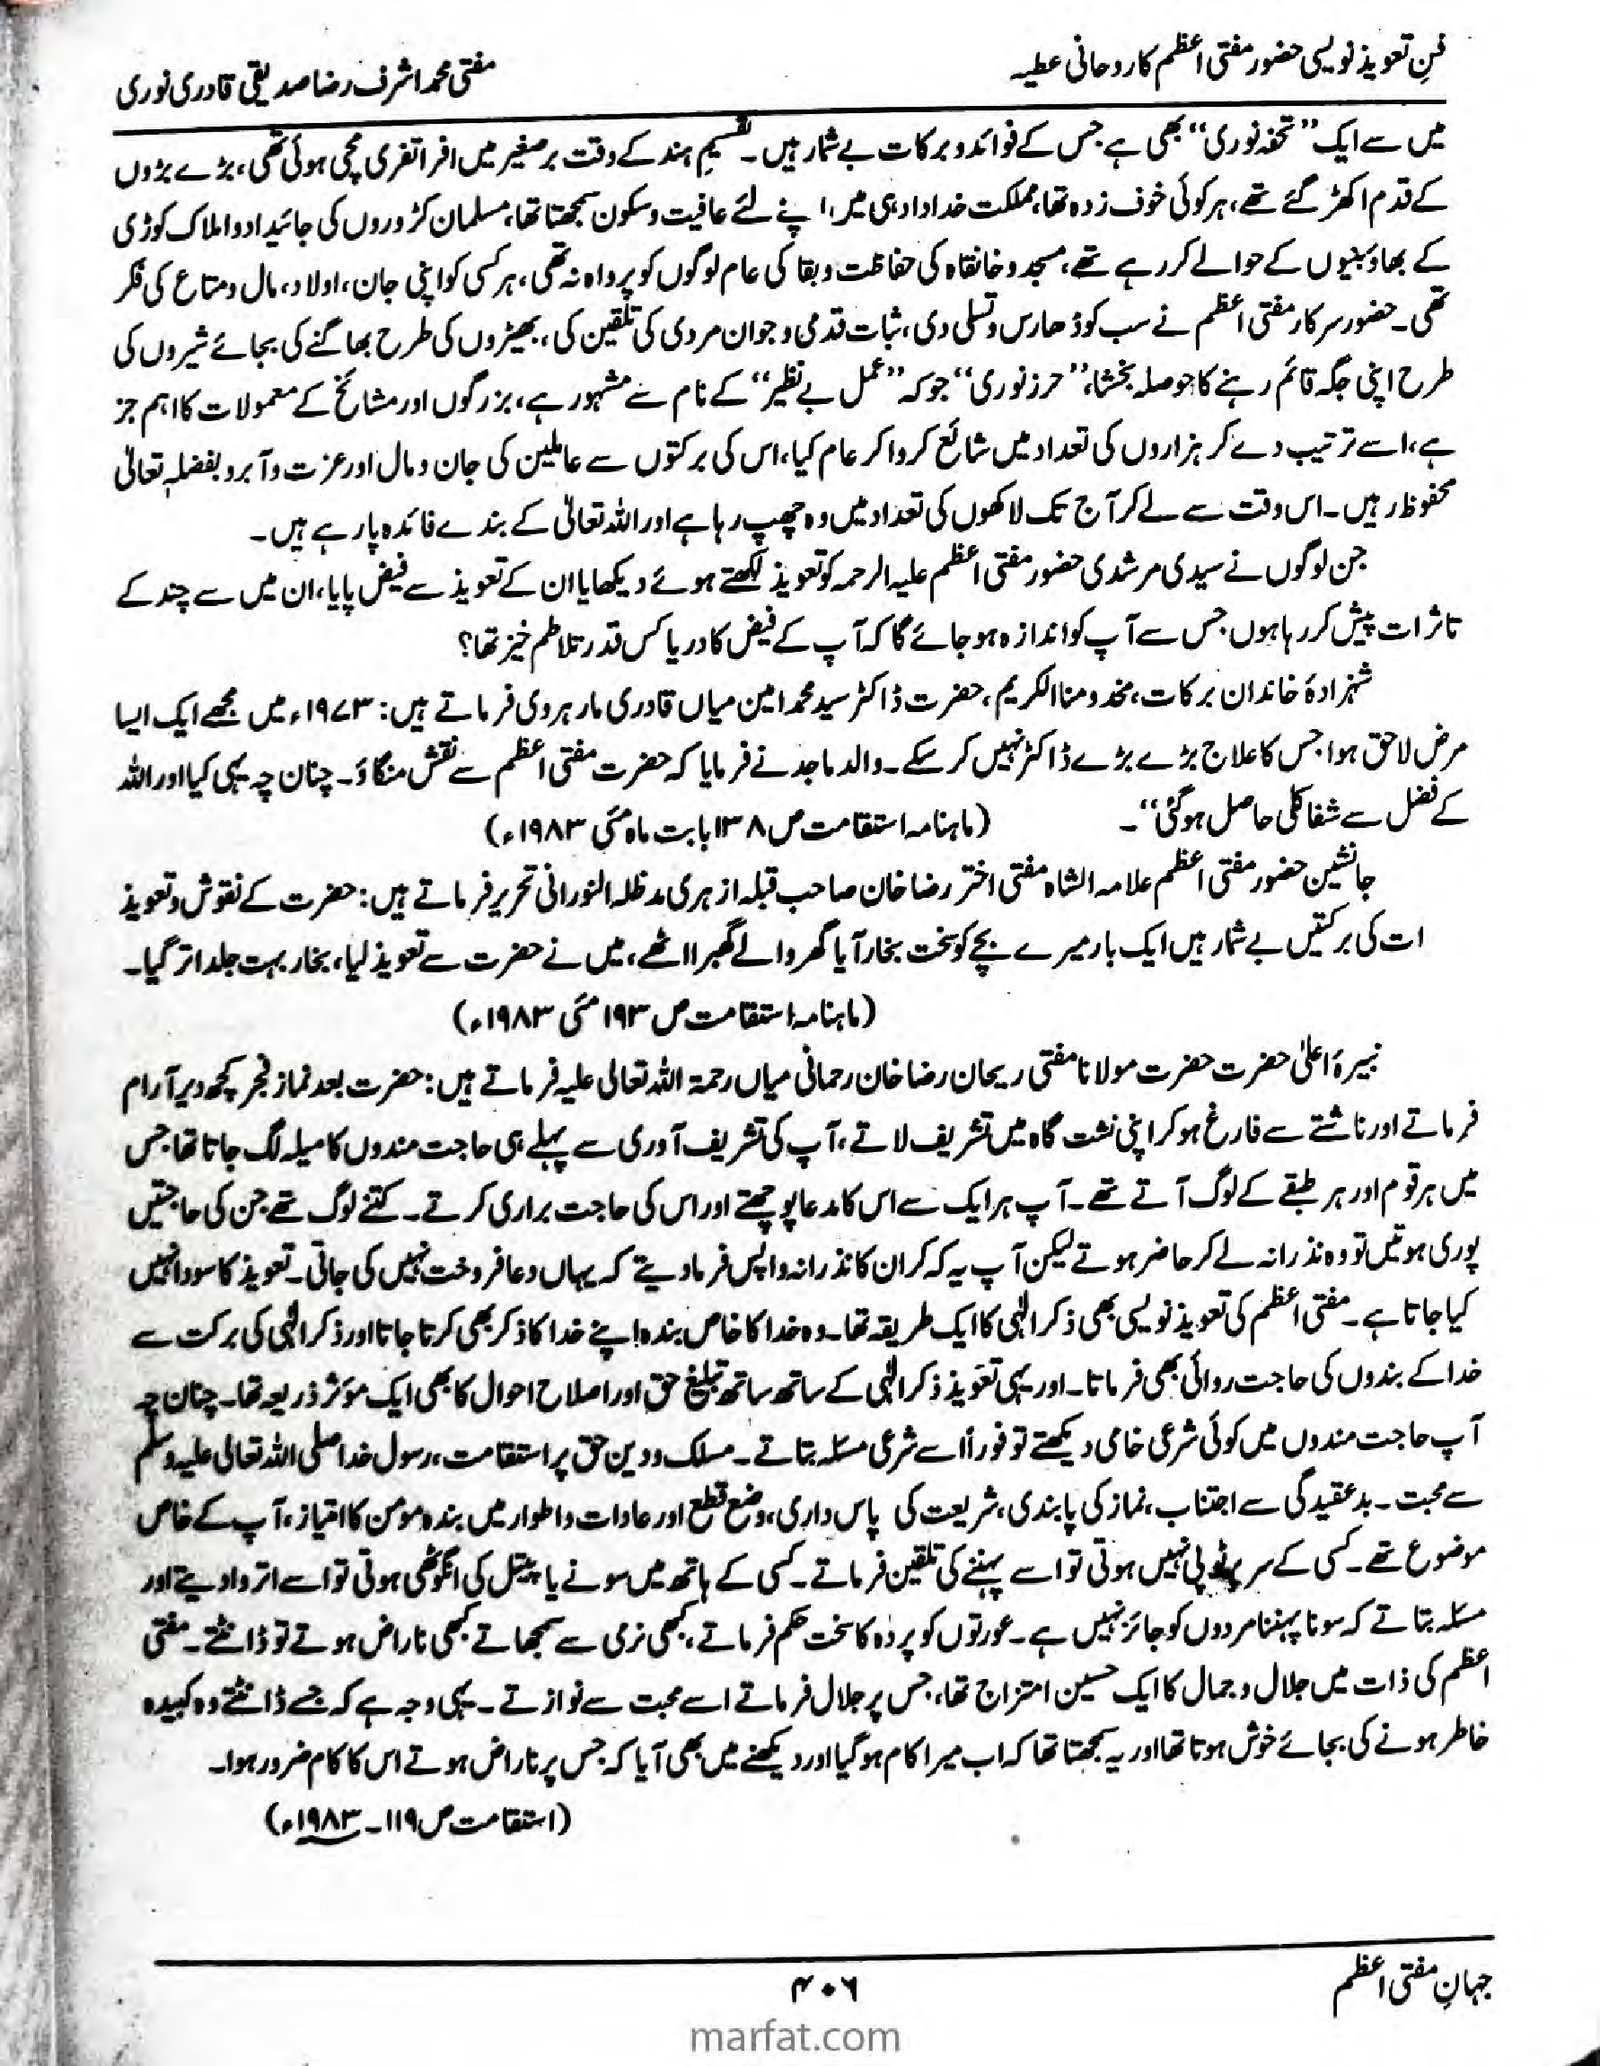 فنِ تعویذ نویسی حضور مفتی اعظم کا روحانی عطیہ
مفتی محمد اشرف رضا صدیقی قادری نوری
میں سے ایک ”تحفہ نوری“ بھی ہے جس کے فوائد و برکات بے شمار ہیں۔ تقسیمِ ہند کے وقت برصغیر میں افراتفری مچی ہوئی تھی، بڑے بڑوں
کے قدم اکھڑ گئے تھے، ہر کوئی خوف زدہ تھا، مملکت خداداد ہی میں اپنے لئے عافیت و سکون سمجھتا تھا، مسلمان کڑوروں کی جائیداد و املاک کوڑی
کے بھاؤ بنیوں کے حوالے کر رہے تھے، مسجد و خانقاہ کی حفاظت و بقا کی عام لوگوں کو پرواہ نہ تھی، ہر کسی کو اپنی جان، اولاد، مال و متاع کی فکر
تھی۔ حضور سرکار مفتی اعظم نے سب کو ڈھارس و تسلی دی، ثبات قدمی و جوان مردی کی تلقین کی، بھیڑوں کی طرح بھاگنے کی بجائے شیروں کی
طرح اپنی جگہ قائم رہنے کا حوصلہ بخشا، ”حرز نوری“ جو کہ ”عمل بے نظیر“ کے نام سے مشہور ہے، بزرگوں اور مشائخ کے معمولات کا اہم جز
ہے، اسے ترتیب دے کر ہزاروں کی تعداد میں شائع کروا کر عام کیا، اس کی برکتوں سے عاملین کی جان و مال اور عزت و آبرو بفضلہٖ تعالیٰ
محفوظ رہیں۔ اس وقت سے لے کر آج تک لاکھوں کی تعداد میں وہ چھپ رہا ہے اور اللہ تعالیٰ کے بندے فائدہ پا رہے ہیں۔
جن لوگوں نے سیدی مرشدی حضور مفتی اعظم علیہ الرحمہ کو تعویذ لکھتے ہوئے دیکھا یا ان کے تعویذ سے فیض پایا، ان میں سے چند کے
تاثرات پیش کر رہا ہوں جس سے آپ کو اندازہ ہو جائے گا کہ آپ کے فیض کا دریا کس قدر تلاطم خیز تھا؟
شہزادۂ خاندان برکات، مخدومنا الکریم، حضرت ڈاکٹر سید محمد امین میاں قادری مارہروی فرماتے ہیں: ۱۹۷۳ء میں مجھے ایک ایسا
مرض لاحق ہوا جس کا علاج بڑے بڑے ڈاکٹر نہیں کر سکے۔ والد ماجد نے فرمایا کہ حضرت مفتی اعظم سے نقش منگاؤ۔ چنان چہ یہی کیا اور اللہ
کے فضل سے شفا کلی حاصل ہو گئی“۔ (ماہنامہ استقامت ص ۱۳۸ بابت ماہ مئی ۱۹۸۳ء)
جانشین حضور مفتی اعظم علامہ الشاہ مفتی اختر رضا خان صاحب قبلہ ازہری مدظلہ النورانی تحریر فرماتے ہیں: حضرت کے نقوش و تعویذ
ات کی برکتیں بے شمار ہیں ایک بار میرے بچے کو سخت بخار آیا گھر والے گھبرا اٹھے، میں نے حضرت سے تعویذ لیا، بخار بہت جلد اتر گیا۔
(ماہنامہ استقامت ص ۱۹۳ مئی ۱۹۸۳ء)
نبیرۂ اعلیٰ حضرت حضرت مولانا مفتی ریحان رضا خان رحمانی میاں رحمۃ اللہ تعالی علیہ فرماتے ہیں: حضرت بعد نماز فجر کچھ دیر آرام
فرماتے اور ناشتے سے فارغ ہو کر اپنی نشت گاہ میں تشریف لاتے، آپ کی تشریف آوری سے پہلے ہی حاجت مندوں کا میلہ لگ جاتا تھا جس
میں ہر قوم اور ہر طبقے کے لوگ آتے تھے۔ آپ ہر ایک سے اس کا مدعا پوچھتے اور اس کی حاجت براری کرتے۔ کتنے لوگ تھے جن کی حاجتیں
پوری ہوتیں تو وہ نذرانہ لے کر حاضر ہوتے لیکن آپ یہ کہہ کر ان کا نذرانہ واپس فرما دیتے کہ یہاں دعا فروخت نہیں کی جاتی۔ تعویذ کا سودا نہیں
کیا جاتا ہے۔ مفتی اعظم کی تعویذ نویسی بھی ذکر الٰہی کا ایک طریقہ تھا۔ وہ خدا کا خاص بندہ اپنے خدا کا ذکر بھی کرتا جاتا اور ذکر الٰہی کی برکت سے
خدا کے بندوں کی حاجت روائی بھی فرماتا۔ اور یہی تعویذ ذکر الٰہی کے ساتھ ساتھ تبلیغ حق اور اصلاح احوال کا بھی ایک مؤثر ذریعہ تھا۔ چنان چہ
آپ حاجت مندوں میں کوئی شرعی خامی دیکھتے تو فوراً اسے شرعی مسئلہ بتاتے۔ مسلک و دین حق پر استقامت، رسول خدا صلی اللہ تعالی علیہ وسلم
سے محبت۔ بدعقیدگی سے اجتناب، نماز کی پابندی، شریعت کی پاس داری، وضع قطع اور عادات و اطوار میں بندہ مومن کا امتیاز، آپ کے خاص
موضوع تھے۔ کسی کے سر پر ٹوپی نہیں ہوتی تو اسے پہننے کی تلقین فرماتے۔ کسی کے ہاتھ میں سونے یا پیتل کی انگوٹھی ہوتی تو اسے اتروا دیتے اور
مسئلہ بتاتے کہ سونا پہننا مردوں کو جائز نہیں ہے۔ عورتوں کو پردہ کا سخت حکم فرماتے، کبھی نرمی سے سمجھاتے کبھی ناراض ہوتے تو ڈانٹتے۔ مفتی
اعظم کی ذات میں جلال و جمال کا ایک حسین امتزاج تھا، جس پر جلال فرماتے اسے محبت سے نوازتے۔ یہی وجہ ہے کہ جسے ڈانٹتے وہ کبیدہ
خاطر ہونے کی بجائے خوش ہوتا تھا اور یہ سمجھتا تھا کہ اب میرا کام ہو گیا اور دیکھنے میں بھی آیا کہ جس پر ناراض ہوتے اس کا کام ضرور ہوا۔
(استقامت ص ۱۱۹۔ ۱۹۸۳ء)
جہانِ مفتی اعظم
۴۰۶
marfat.com